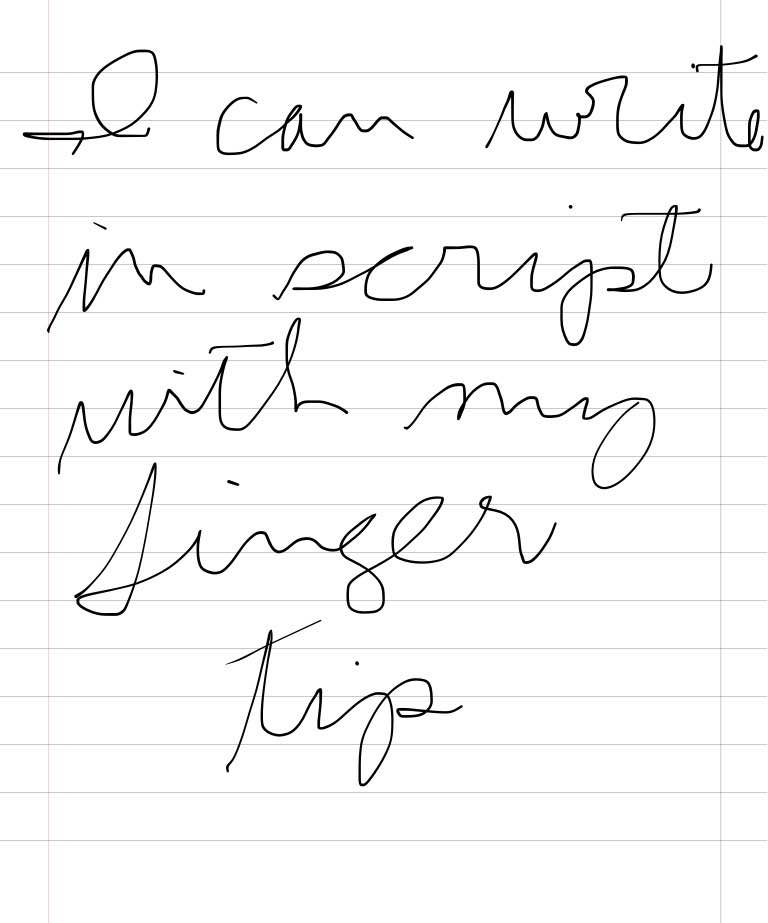 I can write
in script
with my
finger
tip